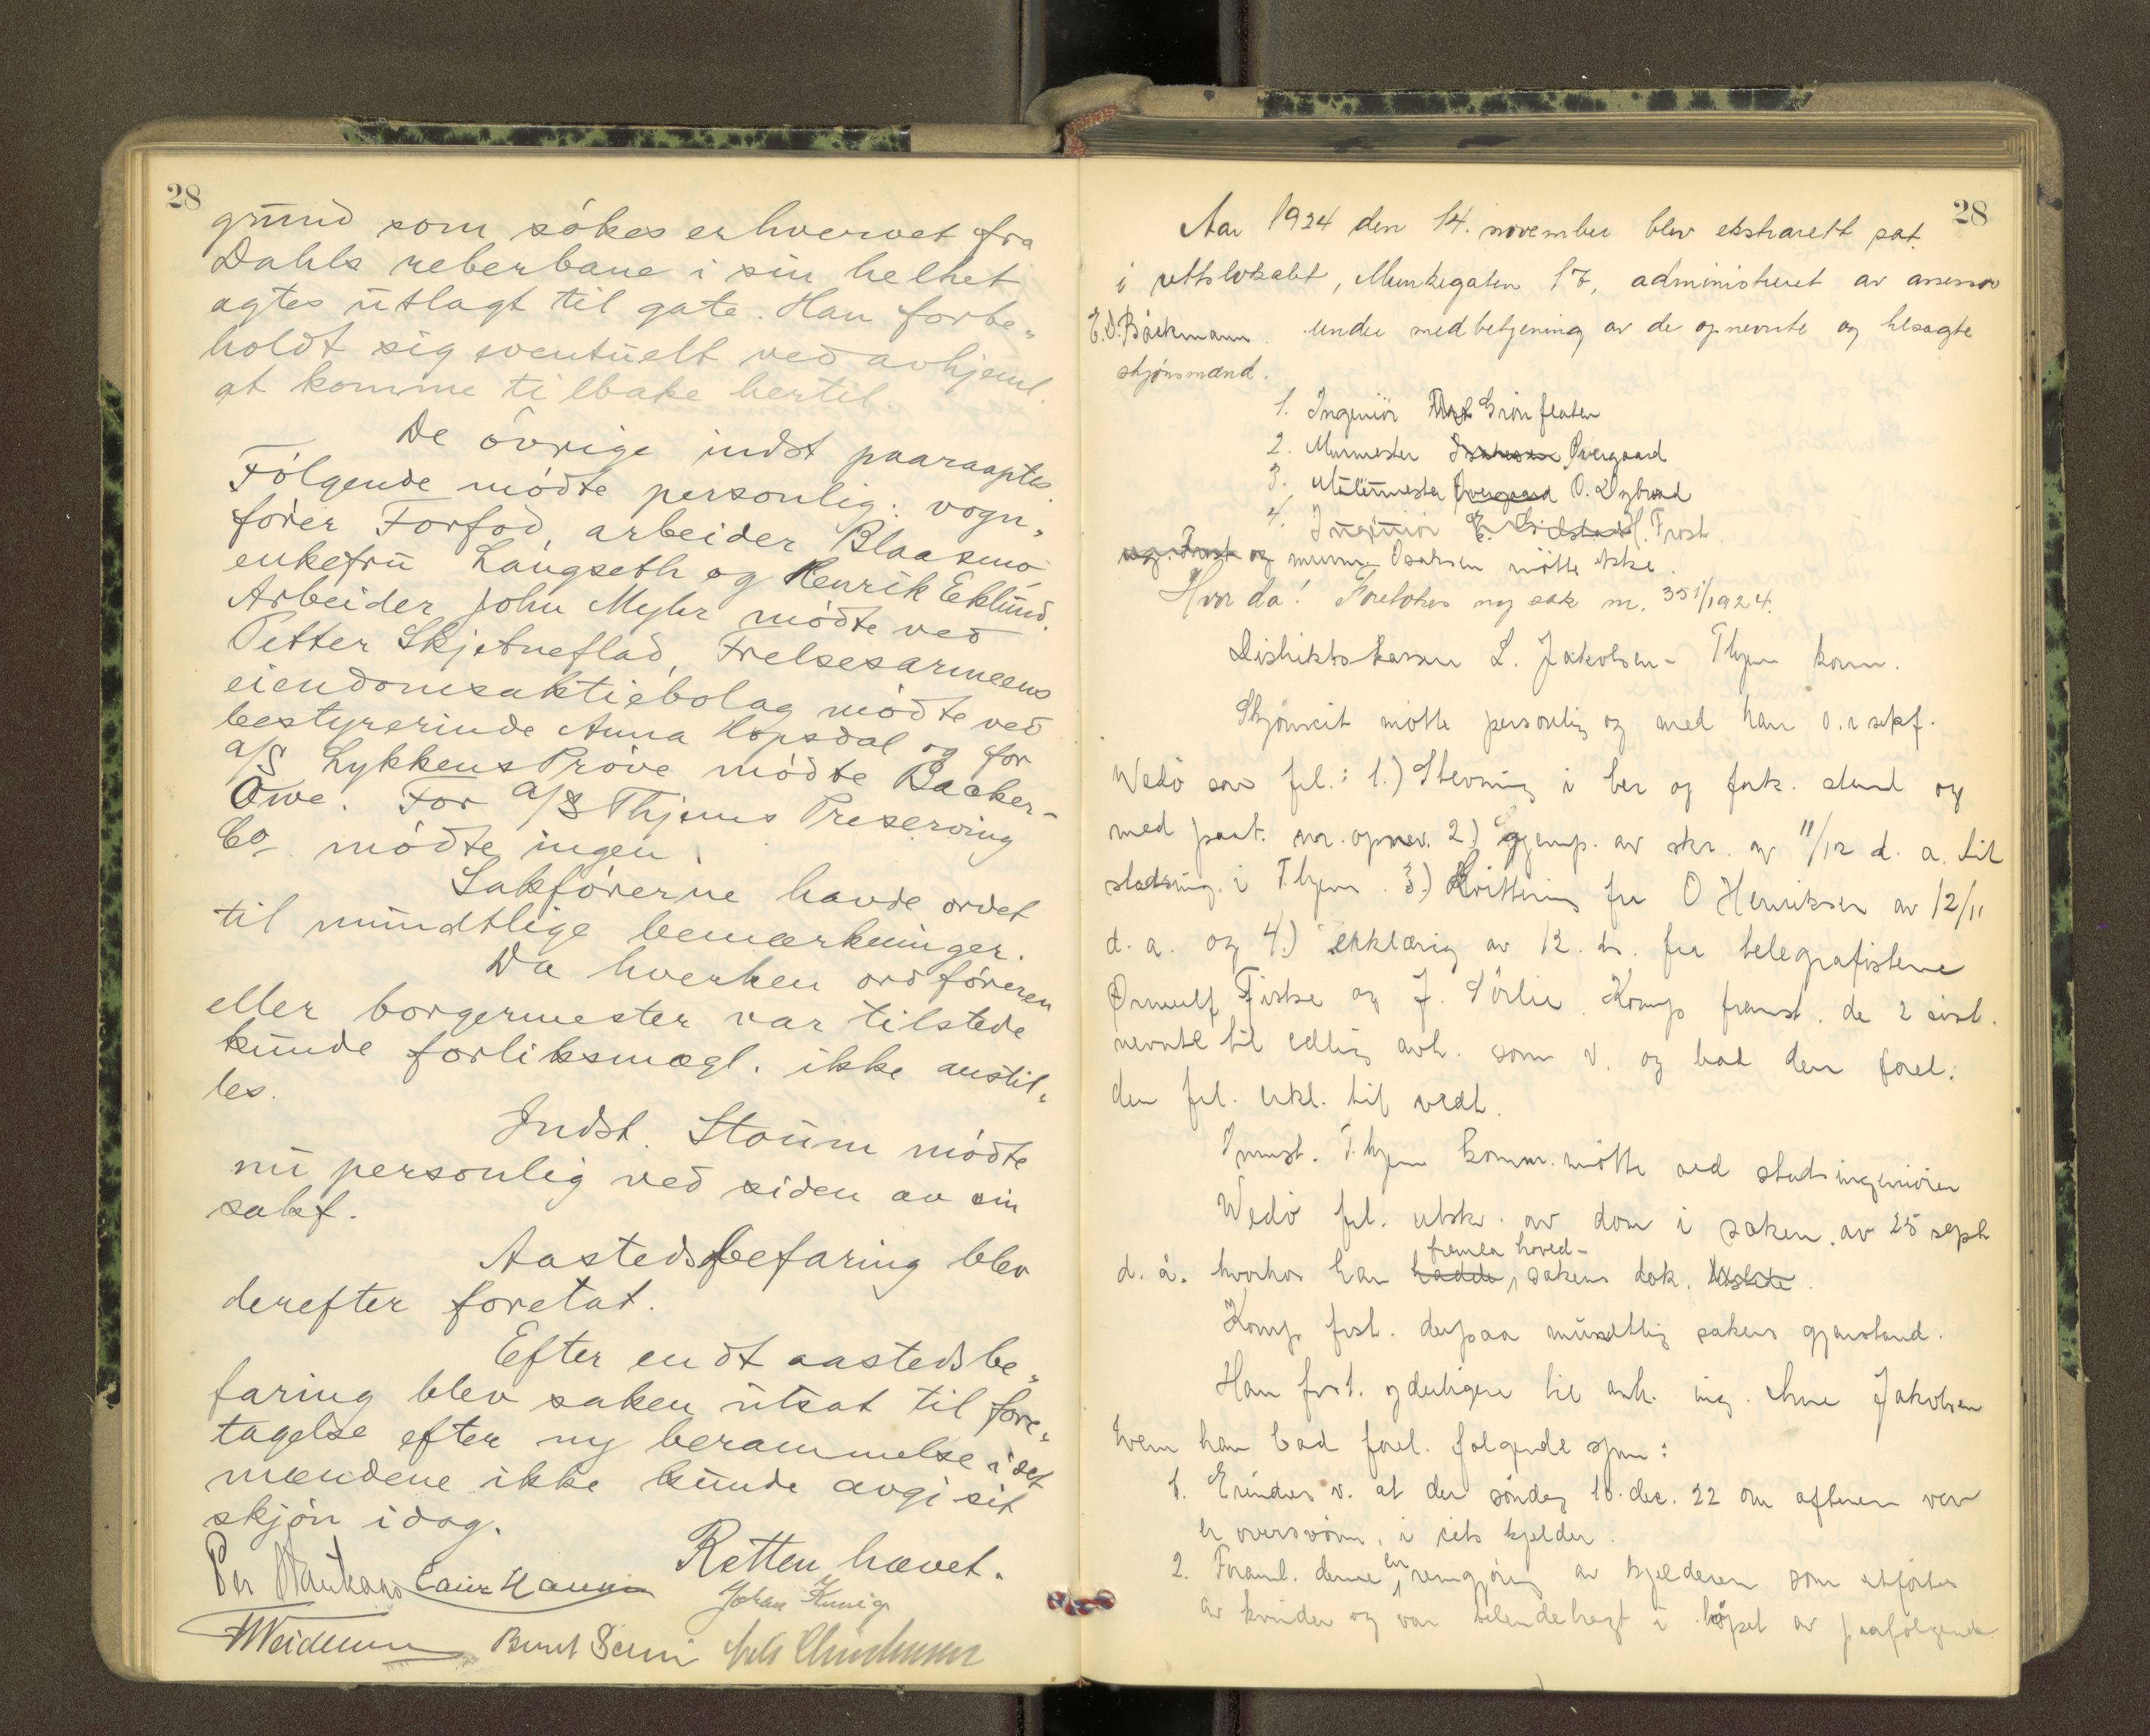 28
grund som søkes erhvervet fra
Dahls reberbane i sin helhet
agtes utlagt til gate. Han forbe-
holdt sig eventuelt ved avhjeml.
at komme tilbake hertil.
De øvrige indst paaraaptes.
Følgende mødte personlig: vogn-
fører Forfod, arbeider Blaasmo
enkefru Langseth og Henrik Eklund.
Arbeider John Myhr mødte ved
Petter Skjetneflad, Frelsesarmeens
eiendomsaktiebolag mødte ved
bestyrerinde Anna Hopsdal og for
a/S Lykkens Prøve mødte Backer-
Owe. For a/S Thjems Preserving
Co mødte ingen.
Sakførerne havde ordet
til mundtlige bemærkninger.
Da hverken ordføreren
eller borgermester var tilstede
kunde forliksmægl. ikke anstil-
les.
Indst. Stoum mødte
nu personlig ved siden av sin
sakf.
Aastedsbefaring blev
derefter foretat.
Efter endt aastedsbe-
faring blev saken utsat til fore-
tagelse efter ny berammelse idet
mændene ikke kunde avgi sit
skjøn idag.
Retten hævet.
Johan
Bernt
28
Aar 1924 den 14. november blev ekstrarett sat
i rettslokalet, Munkegaten 17, administreret av assessor
E.D. Bäckmann under medbetjening av de opnevnte og tilsagte
skjønsmænd.
1. Ingeniør Grønflaten
2. Murmester Isaksen Øvergaard
3. Malermester Øvergaard O. Dybvad
4. Ingeniør H. Frost.
ing. Frost og murm. Isaksen møtte ikke.
Hvor da! Foretokes ny sak nr. 351/1924.
Distriktskasserer L. Jakobsen - Thjem kom.
Skjønscit møtte personlig og med ham o.r.sakf.
Wedø som frl.: 1.) Stevning i ber og fork. stand og
med paat. om opnev. 2.) Gjenp. av skr. av 11/12 d. a. til
stadsing. i T.hjem. 3.) Kvittering fra O Henriksen av 12/11
d. a. og 4.) erklæring av 12. ds. fra telegrafistene
Ørnulf Fiske og J. Sørlie. Komp fremst. de 2 sist.
nevnte til edlig avh. som v. og bad dem forel.
den frl. erkl. til vedt.
Innst. T.hjem komm. møtte ved stadsingeniøren
Wedø frl. utskr. av dom i saken av 25 sept
fremla hoved-
d. å. hvorhos han hadde sakens dok.
Komp frst. derpaa mundtlig sakens gjenstand.
Han frst. yderligere til avh. ing. Jakobsen
hvem han bad forel. følgende spm:
1. Erindres v. at der søndag 10. dec. 22 om aftenen var
en oversvøm. i cits kjelder.
2. Foranl. denne en rengjøring av kjelderen som utførtes
av kvinder og var tilendebragt i løpet av paafølgende